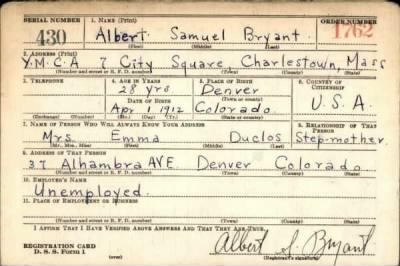 SERIAL NUMBER 1. NAME (Print) ORDER NUMBER
430 Albert Samuel Bryant 1762
(First) (Middle) (Last)
2. ADDRESS (Print)
Y.M.C.A 7 City Square Charlestown, Mass
(Number and street or R. F. D. number) (Town) (County) (State)
3. TELEPHONE 4. AGE IN YEARS 5. PLACE OF BIRTH 6. COUNTRY OF CITIZENSHIP
28 yrs Denver
DATE OF BIRTH (Town or county) U.S.A
Apr 1 1912 Colorado
(Exchange) (Number) (Mo.) (Day) (Yr.) (State or country)
7. NAME OF PERSON WHO WILL ALWAYS KNOW YOUR ADDRESS 8. RELATIONSHIP OF THAT PERSON
Mrs. Emma Duclos Step-mother
(Mr., Mrs., Miss) (First) (Middle) (Last)
9. ADDRESS OF THAT PERSON
37 Alhambra AVE Denver Colorado
(Number and street or R. F. D. number) (Town) (County) (State)
10. EMPLOYER'S NAME
Unemployed.
11. PLACE OF EMPLOYMENT OR BUSINESS
(Number and street or R. F. D. number) (Town) (County) (State)
I AFFIRM THAT I HAVE VERIFIED ABOVE ANSWERS AND THAT THEY ARE TRUE.
REGISTRATION CARD Albert S. Bryant
D. S. S. Form 1 (over) (Registrant's signature)